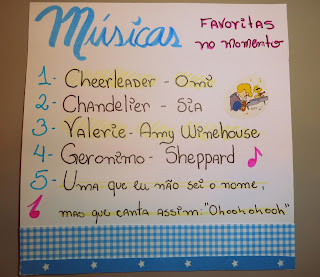 Músicas
FAVORITAS
no momento
1- Cheerleader - Omi
2- Chandelier - Sia
3- Valerie - Amy Winehouse
4- Geronimo - Sheppard
5- Uma que eu não sei o nome,
mas que canta assim: "Ohoohohooh"